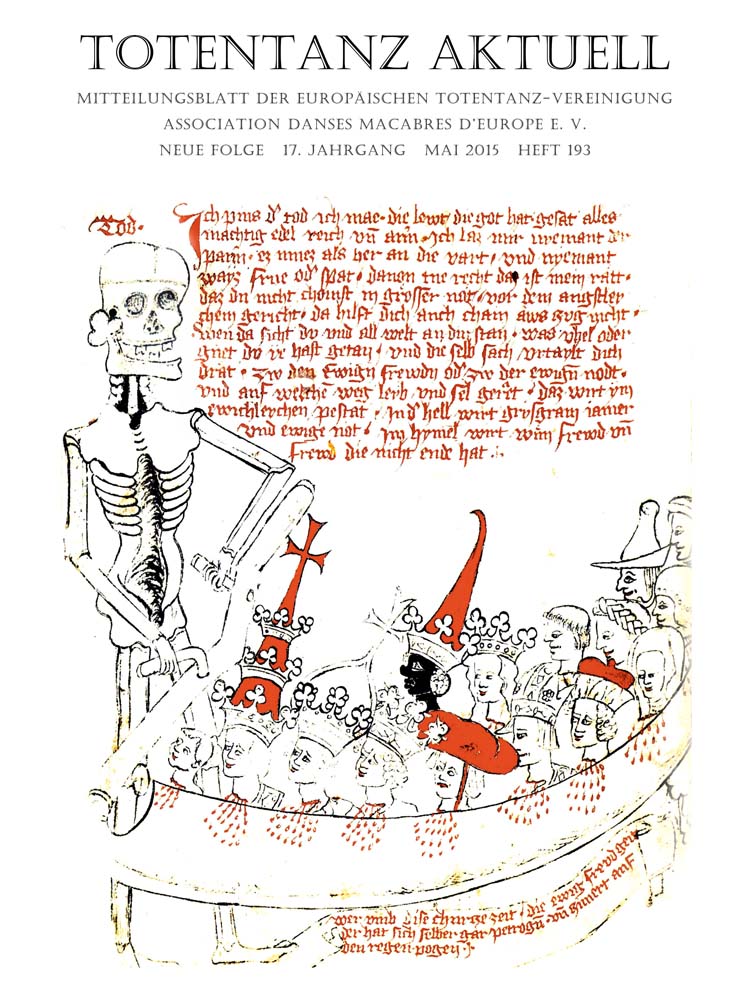 TOTENTANZ AKTUELL
MITTEILUNGSBLATT DER EUROPÄISCHEN TOTENTANZ-VEREINIGUNG
ASSOCIATION DANSES MACABRES D'EUROPE E. V.
NEUE FOLGE 17. JAHRGANG MAI 2015 HEFT 193
Tod.
Ich pins d tod ich mae die lewt die got hat gesat alles
mächtig edel reich vn arm Ich laz mir nyemant
ez muez als her an die vart vnd nyemant
frue od spat danon tue recht daz ist mein ratt
daz du nicht chömst in grosser not vor dem angstler
chem gericht da hilft dich auch chain nicht
wen da sicht du vnd all welt an dir stan was vbel oder
guet du ye hast getan vnd die selb sach vrtaylt dich
drat zw den Ewign frewdn od zw der ewign nodt
vnd auf welche weg leib vnd sel geret daz wirt ym
ewichleychen pestat In d hell wirt grysgram iamer
vnd ewige not Im hymel wirt vnn frewd vn
frewd die nicht ende hat
wer vmb dise churze zeit die ewig frewd geit
der hat sich selber gar petrogn vn zimert auf
den regen pogen